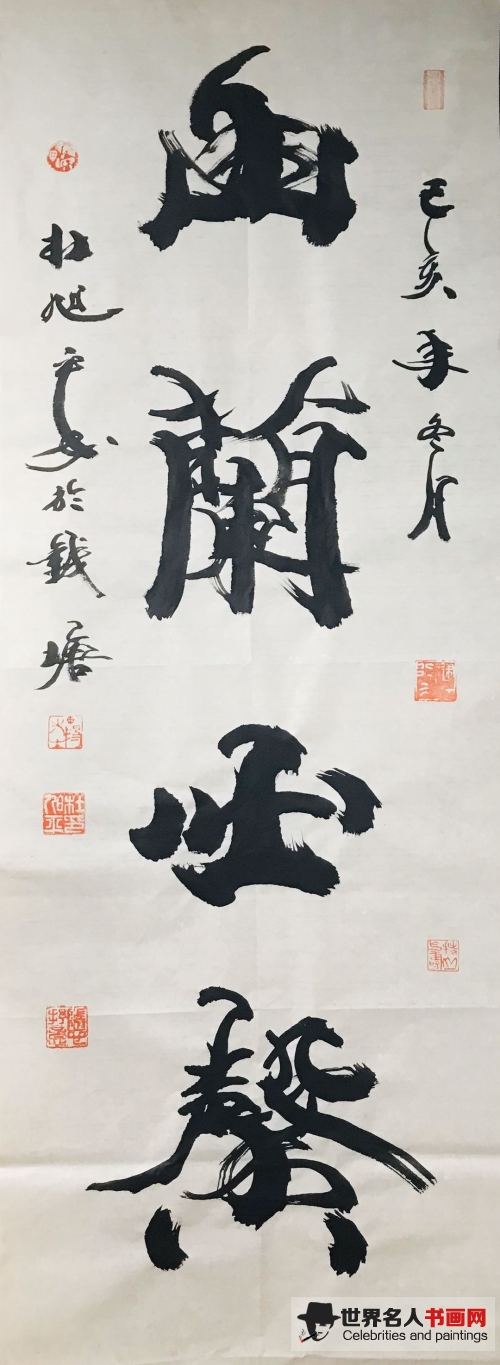 己亥年冬月
幽蘭必馨
杜旭书於錢塘
世界名人书画网
Celebrities and paintings